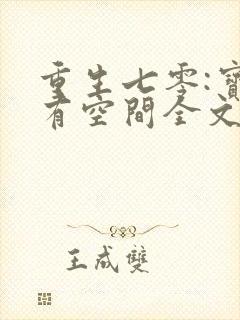 重生七零:寶
有空間全文
王成雙